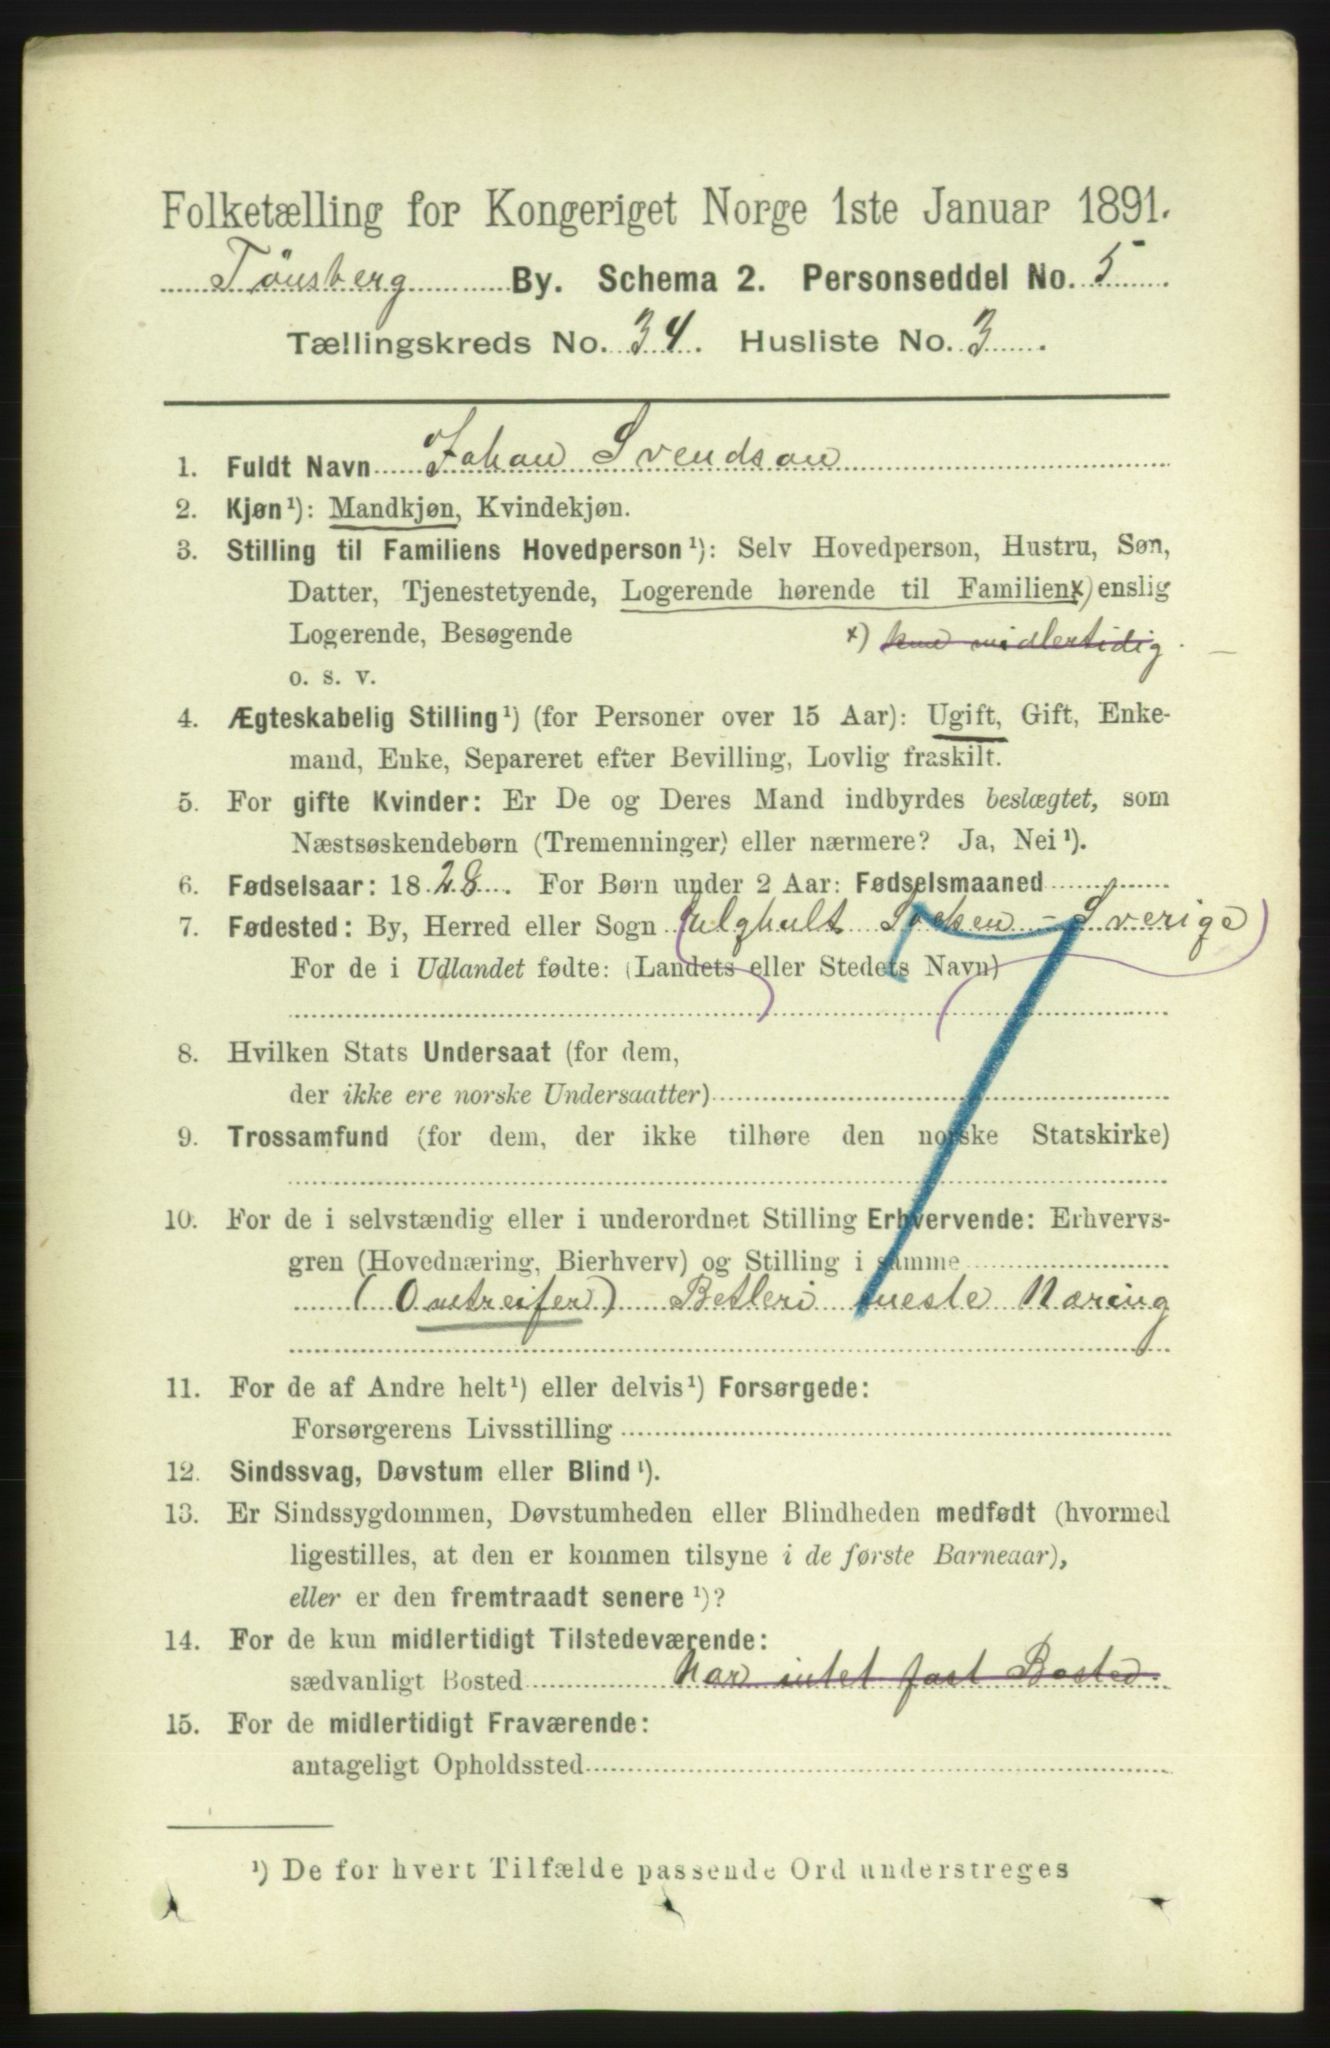 Folketælling for Kongeriget Norge 1ste Januar 1891.
Tønsberg By. Schema 2. Personseddel No. 5
Tællingskreds No. 34. Husliste No. 3.
1. Fuldt Navn Johan Svendson
2. Kjøn¹): Mandkjøn, Kvindekjøn.
3. Stilling til Familiens Hovedperson¹): Selv Hovedperson, Hustru, Søn,
Datter, Tjenestetyende, Logerende hørende til Familien x) enslig
Logerende, Besøgende x) kun midlertidig.
o. s. v.
4. Ægteskabelig Stilling¹) (for Personer over 15 Aar): Ugift, Gift, Enke-
mand, Enke, Separeret efter Bevilling, Lovlig fraskilt.
5. For gifte Kvinder: Er De og Deres Mand indbyrdes beslægtet, som
Næstsøskendebørn (Tremenninger) eller nærmere? Ja, Nei¹).
6. Fødselsaar: 1828. For Børn under 2 Aar: Fødselsmaaned
7. Fødested: By, Herred eller Sogn Socken - Sverige
For de i Udlandet fødte: (Landets eller Stedets Navn)
7
8. Hvilken Stats Undersaat (for dem,
der ikke ere norske Undersaatter)
9. Trossamfund (for dem, der ikke tilhøre den norske Statskirke)
10. For de i selvstændig eller i underordnet Stilling Erhvervende: Erhvervs-
gren (Hovednæring, Bierhverv) og Stilling i samme
(Omtreifer) Betleri meste Næring
11. For de af Andre helt¹) eller delvis¹) Forsørgede:
Forsørgerens Livsstilling
12. Sindssvag, Døvstum eller Blind¹).
13. Er Sindssygdommen, Døvstumheden eller Blindheden medfødt (hvormed
ligestilles, at den er kommen tilsyne i de første Barneaar),
eller er den fremtraadt senere¹)?
14. For de kun midlertidigt Tilstedeværende:
sædvanligt Bosted Har intet fast Bosted.
15. For de midlertidigt Fraværende:
antageligt Opholdssted
¹) De for hvert Tilfælde passende Ord understreges